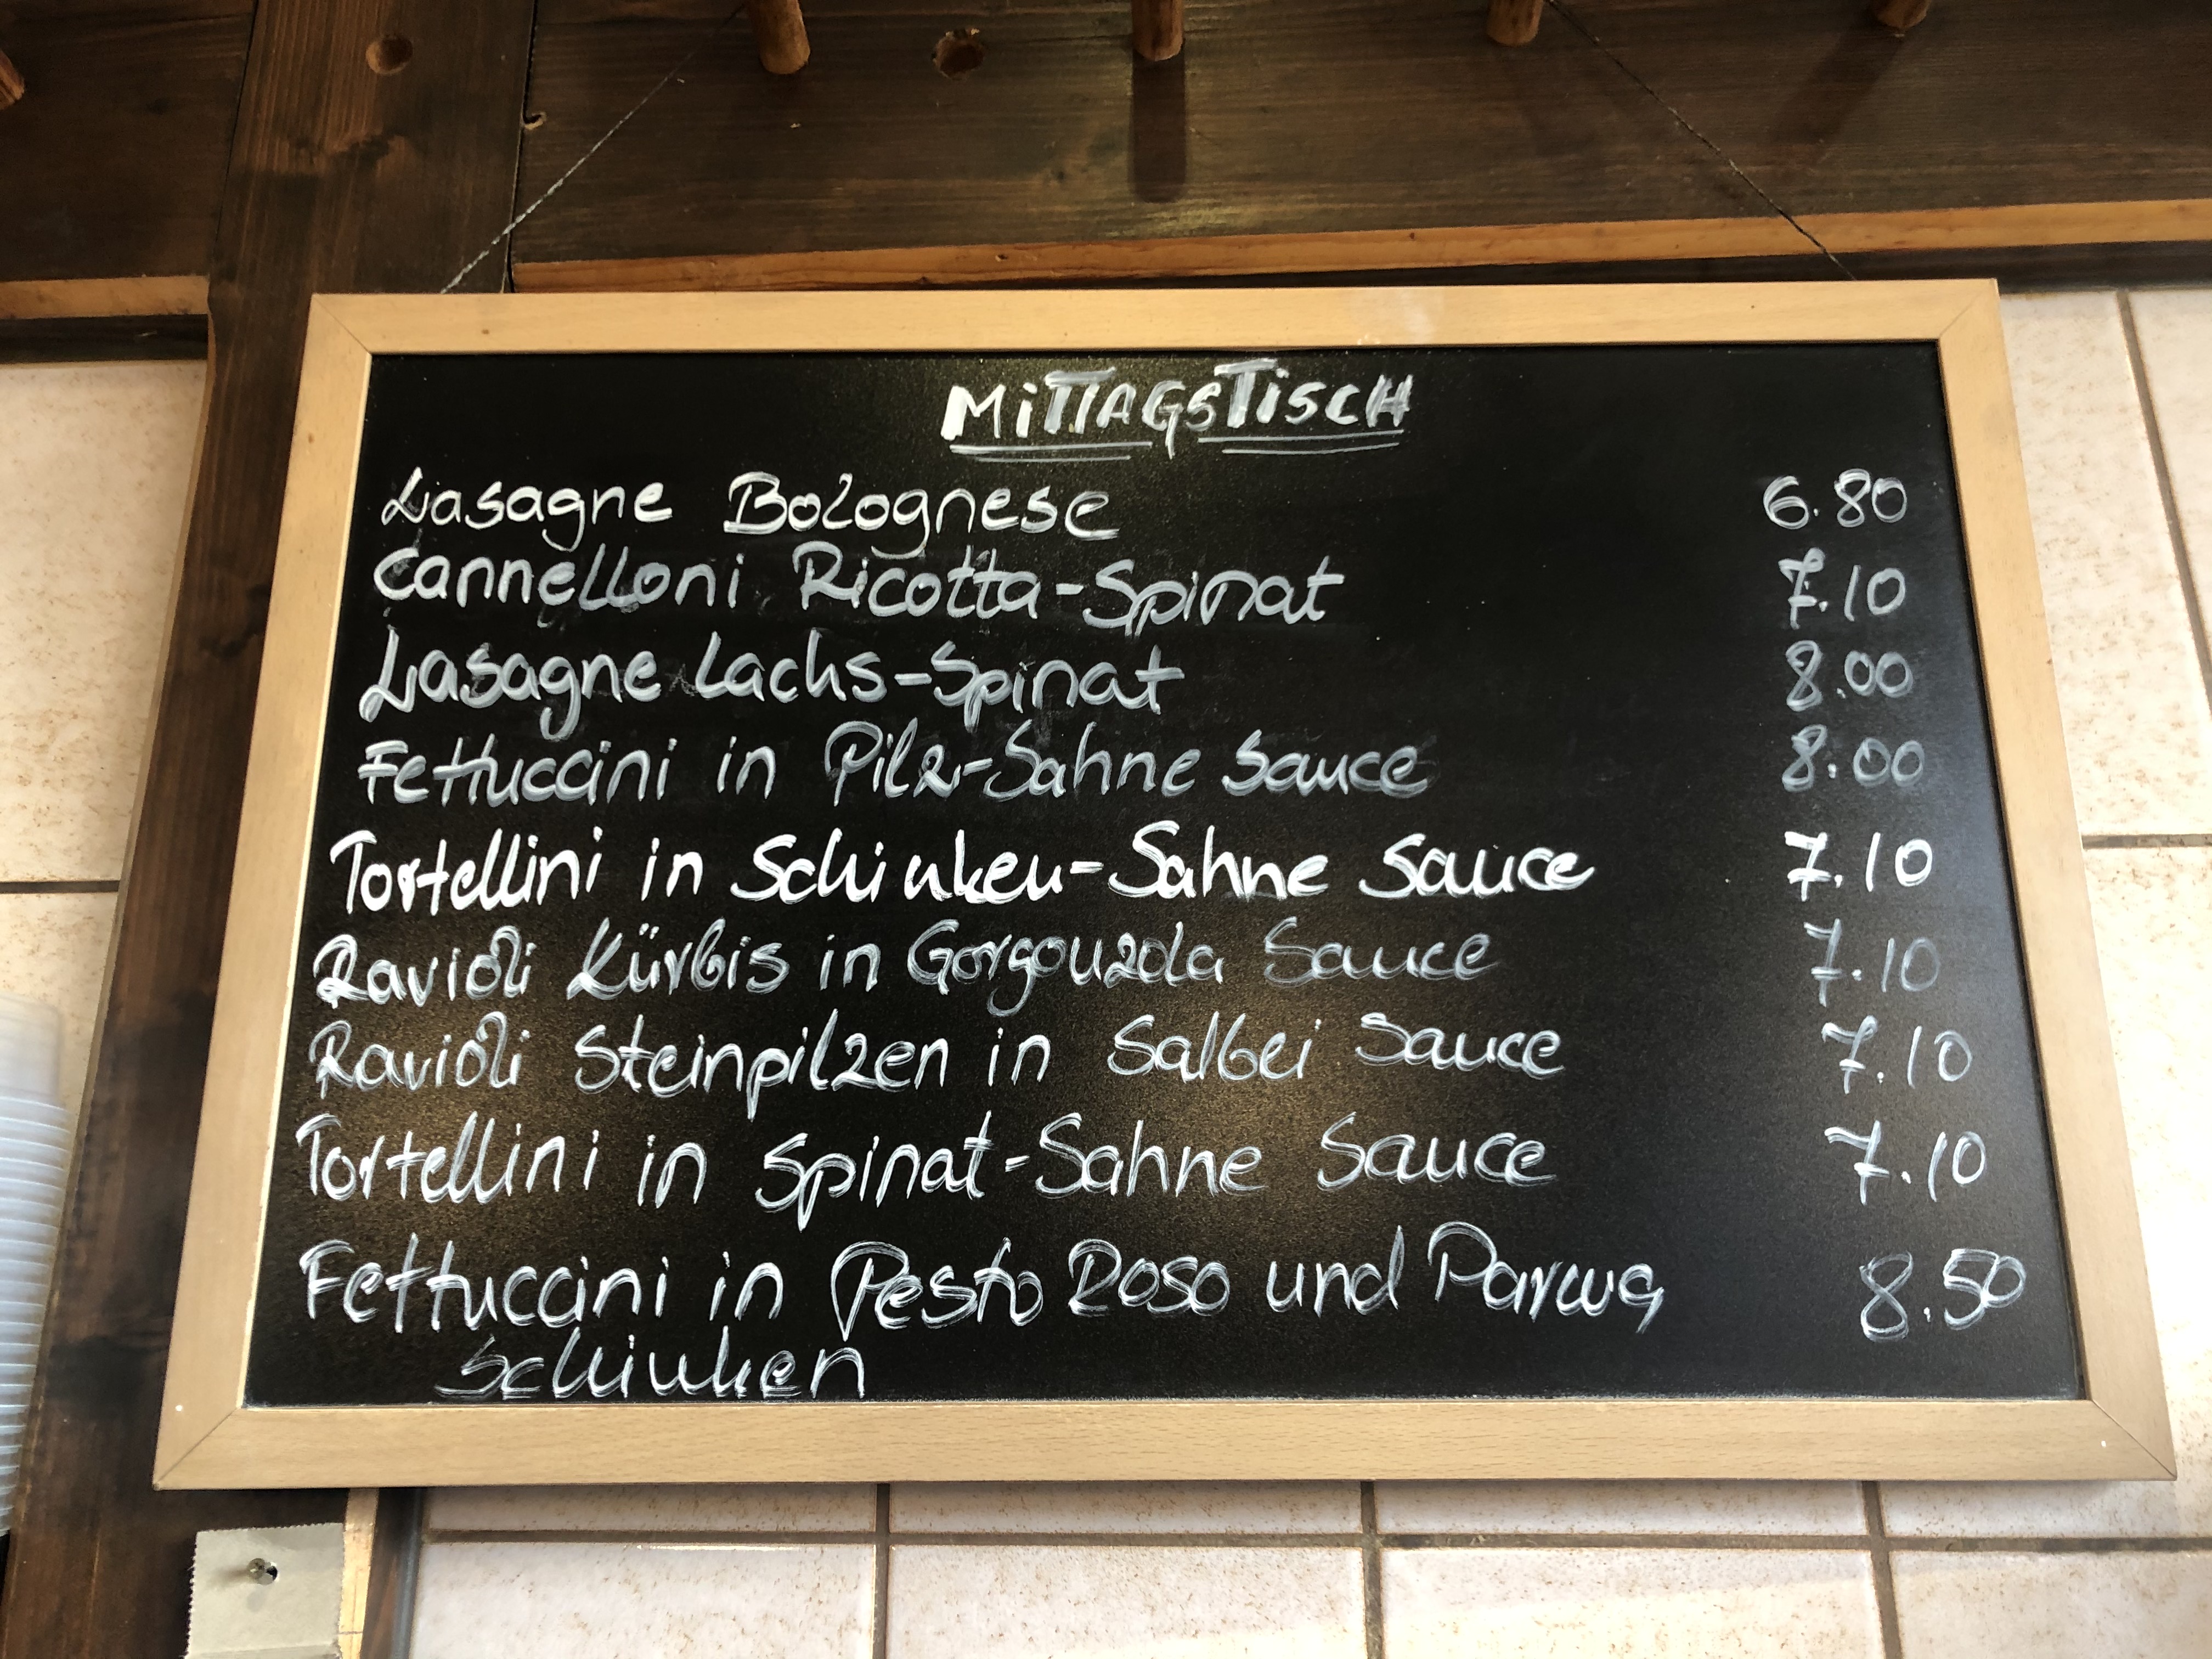 MiTTAGSTiSCH
Lasagne Bolognese 6.80
Cannelloni Ricotta-Spinat 7.10
Lasagne Lachs-Spinat 8.00
Fettuccini in Pilz-Sahne Sauce 8.00
Tortellini in Schinken-Sahne Sauce 7.10
Ravioli Kürbis in Gorgonzola Sauce 7.10
Ravioli Steinpilzen in Salbei Sauce 7.10
Tortellini in Spinat-Sahne Sauce 7.10
Fettuccini in Pesto Roso und Parma 8.50
Schinken